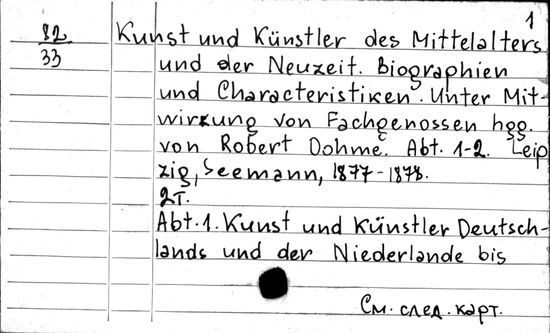 1
82
33
Kunst und Künstler des Mittelalters
und der Neuzeit. Biographien
und Characteristiken. Unter Mit-
wirkung von Fachgenossen hgg.
von Robert Dohme. Abt. 1-2. Leip
zig, Seemann, 1877-1878.
2т.
Abt. 1. Kunst und Künstler Deutsch-
lands und der Niederlande bis
См. след. карт.